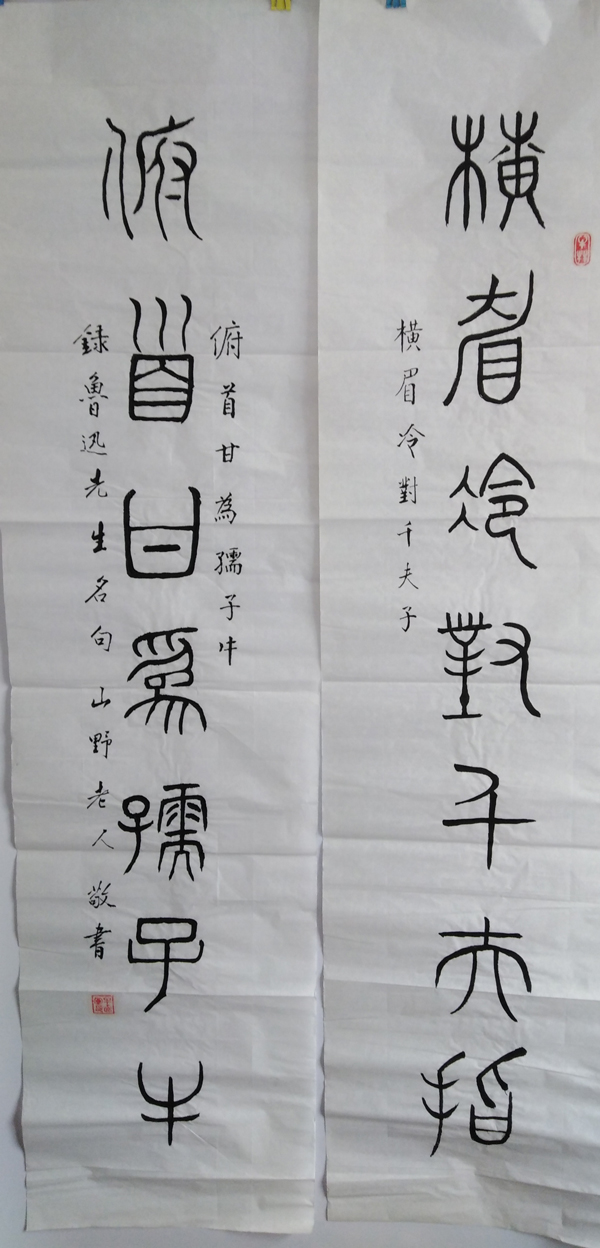 橫眉冷對千夫指
橫眉冷對千夫子
俯首甘為孺子牛
俯首甘為孺子牛
錄魯迅先生名句 山野老人 敬書